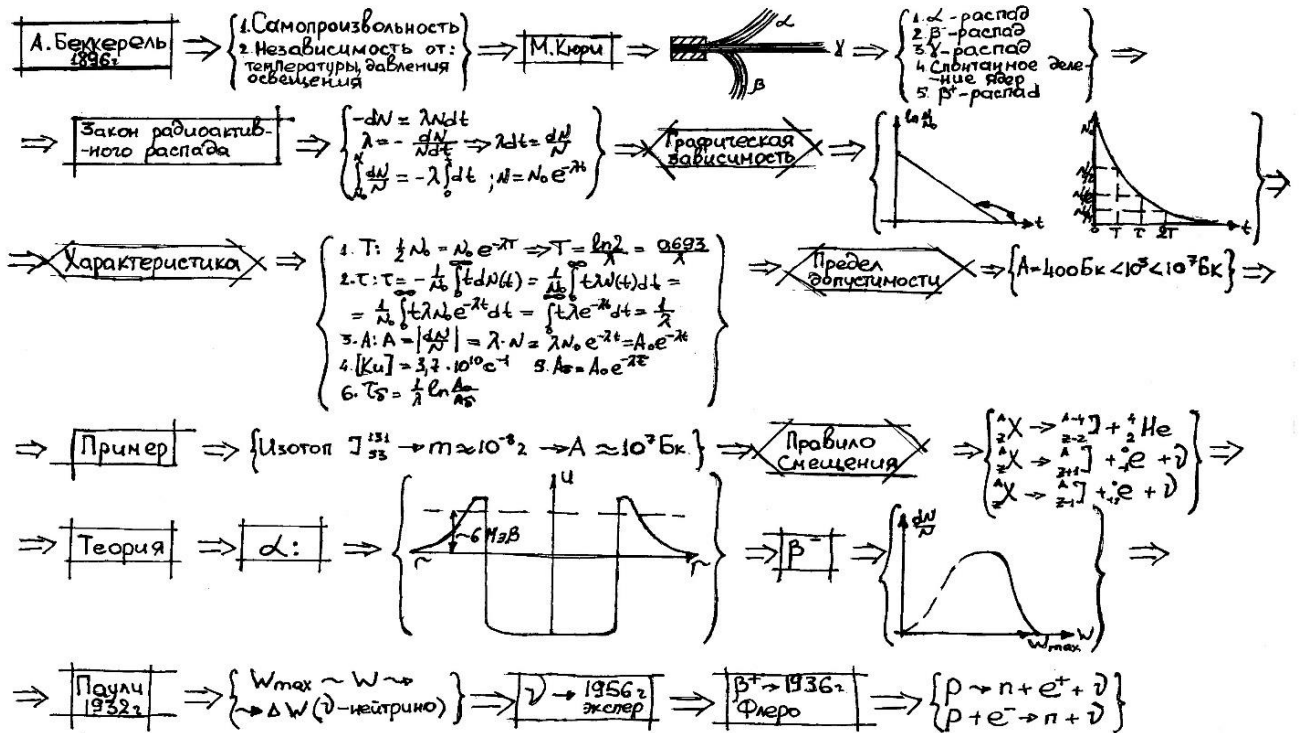 А. Беккерель
1896г
1. Самопроизвольность
2. Независимость от:
температуры, давления
освещения
М. Кюри
α
γ
β
1. α - распад
2. β⁻ - распад
3. γ - распад
4. Спонтанное деле-
-ние ядер
5. β⁺ - распад
Закон радиоактив-
-ного распада
-dN = λNdt
λ = - dN/Ndt ⇒ λdt = dN/N
∫ dN/N = -λ∫dt ; N = N₀e^-λt
Графическая
зависимость
ln N/N₀
t
N₀
N/2
N/e
N/4
0 T τ 2T t
Характеристика
1. T: 1/2 N₀ = N₀e^-λT ⇒ T = ln2/λ = 0,693/λ
2. τ: τ = - 1/N₀ ∫tdN(t) = 1/N₀ ∫tλN(t)dt =
= 1/N₀ ∫tλN₀e^-λt dt = ∫tλe^-λt dt = 1/λ
3. A: A = |dN/N| = λ·N = λN₀e^-λt = A₀e^-λt
4. [Ku] = 3,7·10¹⁰ c⁻¹ 5. Aδ = A₀e^-λτ
6. τδ = 1/λ ln A₀/Aδ
Предел
допустимости
A = 400 Бк < 10³ < 10⁷ Бк
Пример
Изотоп J ¹³¹₅₃ → m ≈ 10⁻⁸ г → A ≈ 10⁷ Бк.
Правило
Смещения
ᴬ_Z X → ᴬ⁻⁴_Z-2 J + ⁴₂He
ᴬ_Z X → ᴬ_Z+1 J + ⁰₋₁e + ν̃
ᴬ_Z X → ᴬ_Z-1 J + ⁰₊₁e + ν
Теория
α:
U
~6 МэВ
r
r
β⁻
dN/N
Wmax W
Паули
1932г
Wmax ~ W →
→ ΔW (ν-нейтрино)
ν → 1956г
экспер
β⁺ → 1936г
Флеро
p → n + e⁺ + ν
p + e⁻ → n + ν